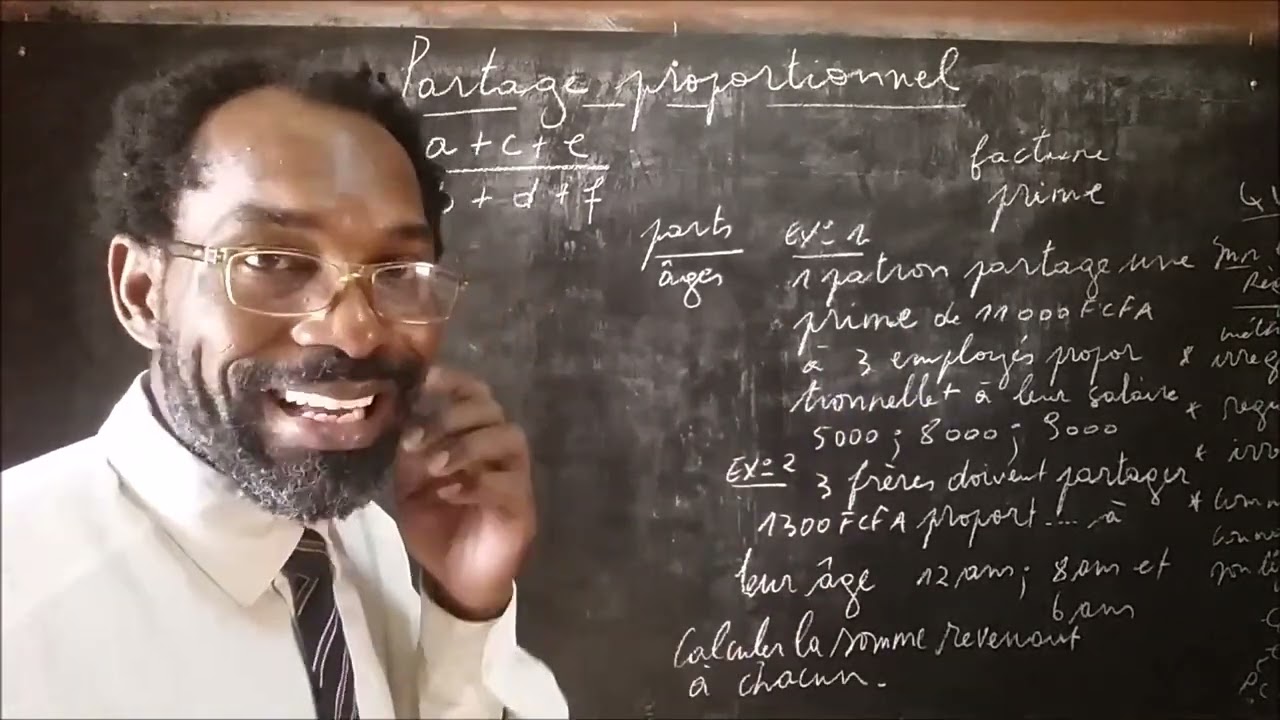 Partage proportionnel
a + c + e
+ d + f
facture
prime
parts
âges
Exo 1
1 patron partage une
prime de 11000 FCFA
à 3 employés propor
tionnellet à leur salaire
5000 ; 8000 ; 9000
Exo 2
3 frères doivent partager
1300 FCFA proport.... à
leur âge 12 ans ; 8 ans et
6 ans
Calculer la somme revenant
à chacun.